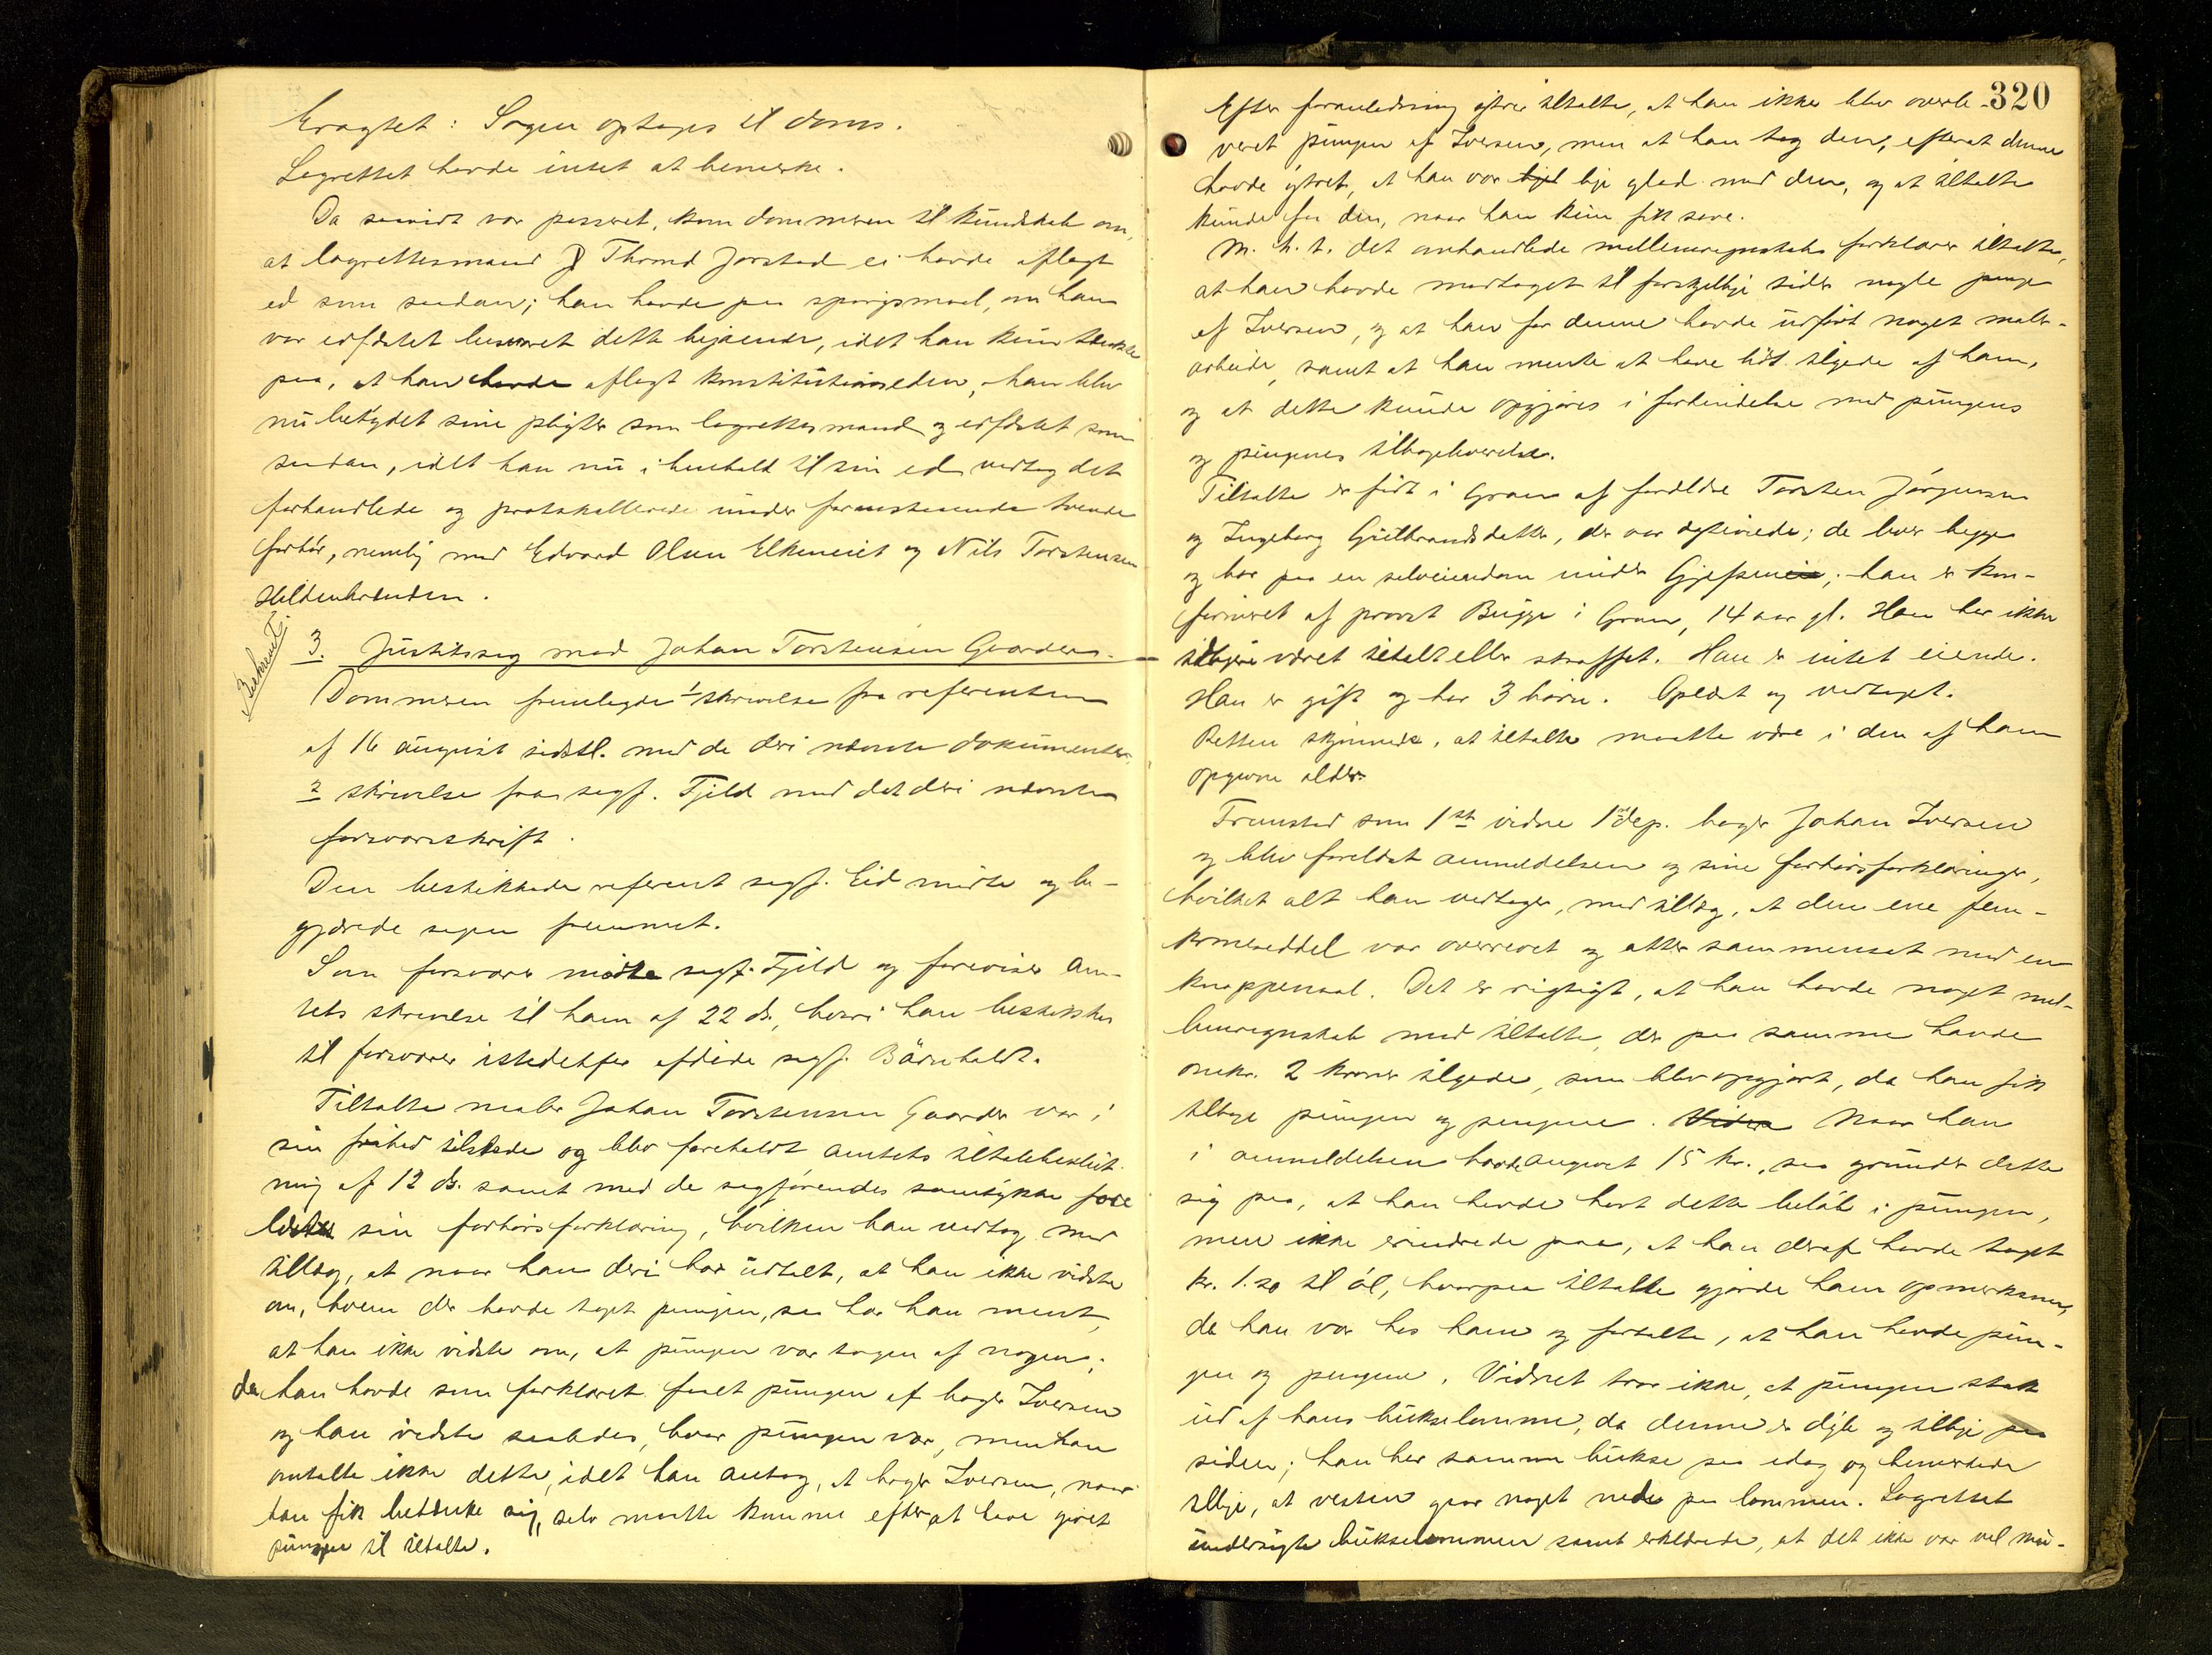 Eragtet: Sagen optages til doms.
Lagrettet havde intet at bemerke.
Da saavidt var passeret, kom dommeren til kundskab om,
at lagrettesmand Thrond Jorstad ei havde aflagt
ed som saadan; han havde paa spørgsmaal, om han
var edfæstet besvaret dette bejaende, idet han kun tænkte
paa, at han havde aflagt konstitutionseden, han blev
nu betydet sine pligter som lagrettesmand og edfæstet som
saadan, idet han nu i henhold til sin ed vedtog det
forhandlede og protokollerede under foranstaaende tvende
forhør, nemlig mod Edvard Olsen Elkeneiet og Nils Torstensen
Hildenbranden.
Beskrevet.
3. Justitssag mod Johan Torstensen Gaarder.
Dommeren fremlagde 1 skrivelse fra referenten
af 16 august sidstl. med de deri nævnte dokumenter,
2 skrivelse fra sagf. Fjeld med det deri nævnte
forsvarsskrift.
Den beskikkede referent sagf. Eid mødte og be-
gjærede sagen fremmet.
Som forsvarer mødte sagf. Fjeld og foreviser am-
tets skrivelse til ham af 22 ds., hvori han beskikkes
til forsvarer istedetfor afdøde sagf. Bärnholdt.
Tiltalte maler Johan Torstensen Gaarder var i
sin frihed tilstede og blev foreholdt amtets tiltalebeslut-
ning af 12 ds. samt med de sagførendes samtykke fore
læst sin forhørsforklaring, hvilken han vedtog med
tillæg, at naar han deri har udtalt, at han ikke vidste
om, hvem der havde taget pungen, saa har han ment,
at han ikke vidste om, at pungen var tagen af nogen;
da han havde som forklaret faaet pungen af bager Iversen
og han vidste saaledes, hvor pungen var, men han
omtalte ikke dette, idet han antog, at bager Iversen, naar
han fik betænke sig, selv maatte komme efter at have givet
pungen til tiltalte.
320
Efter foranledning ytrer tiltalte, at han ikke blev overle-
veret pungen af Iversen, men at han tog den, efterat denne
havde ytret, at han var lige glad med den, og at tiltalte
kunde faa den, naar han kun fik sove.
M. h. t. det omhandlede mellemregnskab forklarer tiltalte,
at han havde modtaget til forskjellige tider nogle penge
af Iversen, og at han for denne havde udført noget maler-
arbeide, samt at han mente at have lidt tilgode af ham,
og at dette kunde opgjøres i forbindelse med pungens
og pengenes tilbageleverelse.
Tiltalte er født i Gran af forældre Torsten Jørgensen
og Ingeborg Gulbrandsdatter, der var ægteviede; de lever begge
og bor paa en selveiendom under; han er kon-
firmeret af provst Bugge i Gran, 14 aar gl. Han har ikke
tidligere været tiltalt eller straffet. Han er intet eiende.
Han er gift og har 3 børn. Oplæst og vedtaget.
Retten skjønnede, at tiltalte maatte være i den af ham
opgivne alder.
Fremstod som 1ste vidne 1. dep. bager Johan Iversen
og blev forelæst anmeldelsen og sine forhørsforklaringer,
hvilket alt han vedtager, med tillæg, at den ene fem-
kroneseddel var overrevet og atter sammensat med en
knappenaal. Det er rigtigt, at han havde noget mel-
lemregnskab med tiltalte, der paa samme havde
omkr. 2 kroner tilgode, som blev opgjort, da han fik
tilbage pungen og pengene. Naar han
i anmeldelsen havde angivet 15 kr., saa grunder dette
sig paa, at han havde havt dette beløb i pungen,
men ikke erindrede paa, at han deraf havde taget
kr. 1.20 til øl, hvorpaa tiltalte gjorde ham opmerksom,
da han var hos ham og fortalte, at han havde pun-
gen og pengene. Vidnet tror ikke, at pungen stak
ud af hans bukselomme, da denne er dyb og tillige paa
siden; han har samme bukse paa idag og bemerkede
tillige, at vesten gaar noget neden paa lommen. Lagrettet
undersøgte bukselommen samt erklærede, at det ikke var vel mu-